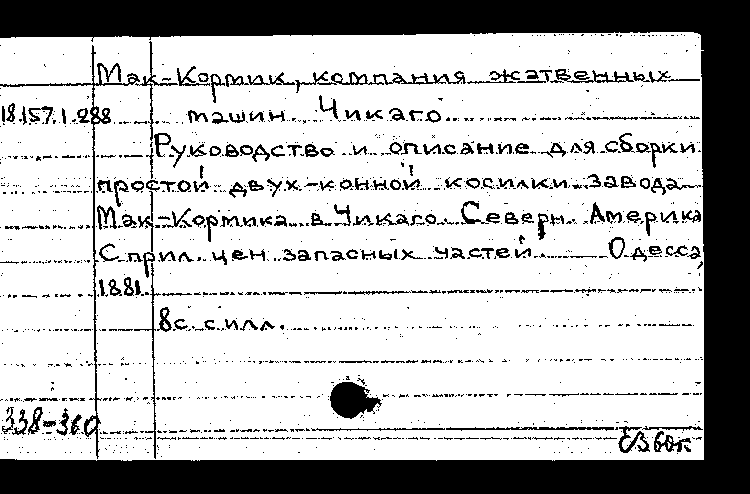 Мак-Кормик, компания жатвенных
18.157.1.288 машин. Чикаго.
Руководство и описание для сборки
простой двух-конной косилки завода
Мак-Кормика в Чикаго. Северн. Америка
С прил. цен запасных частей. Одесса,
1881.
8с. с илл.
338-360